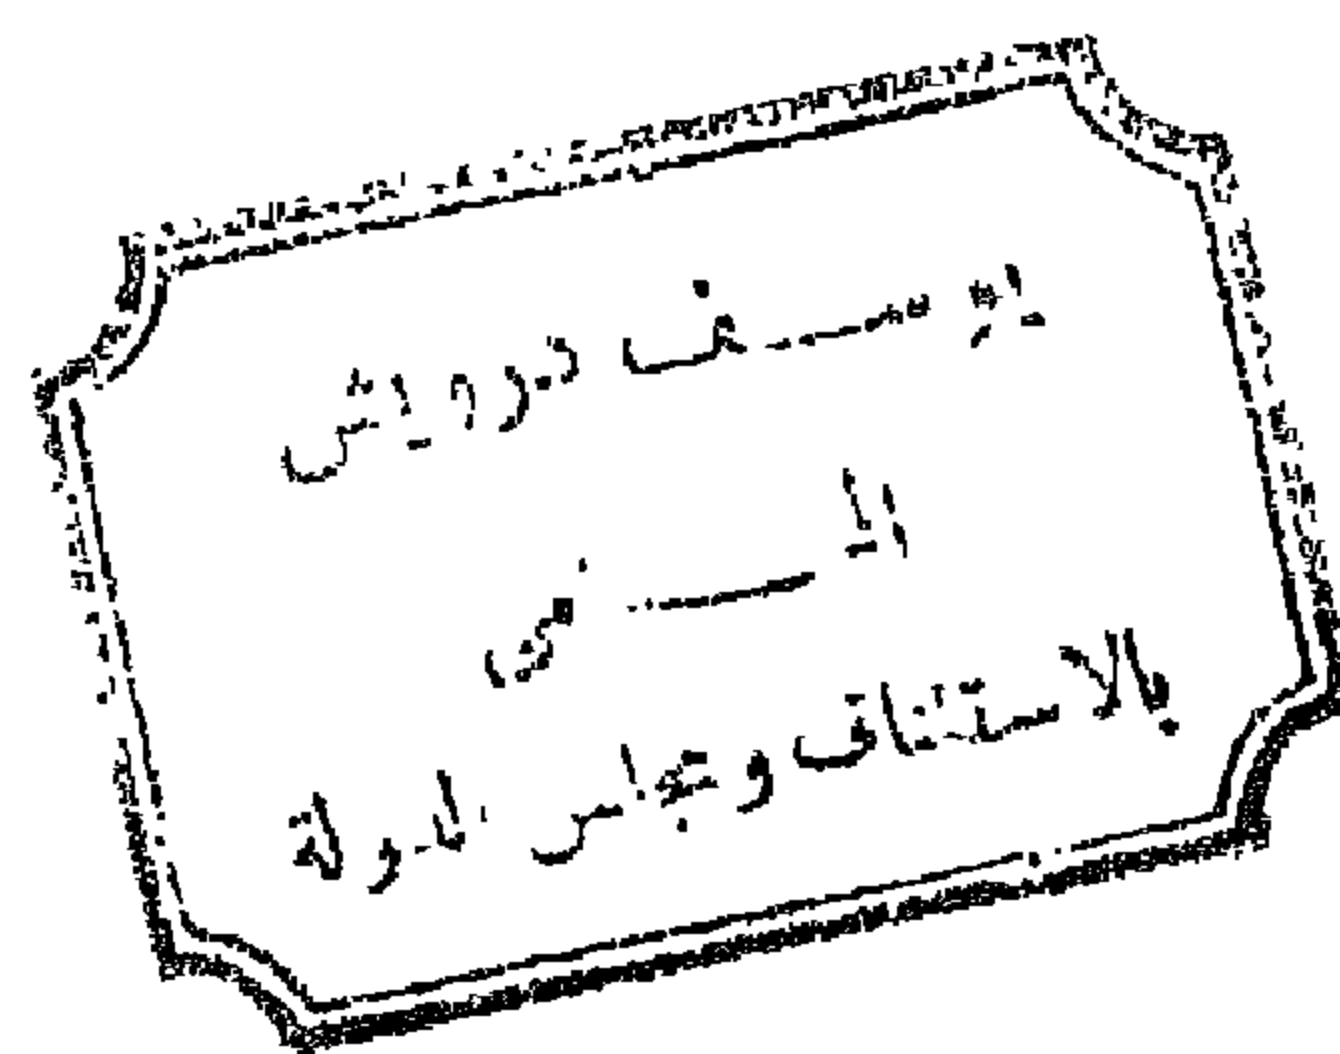 يوسف درويش
المحامى
بالاستئناف ومجلس الدولة